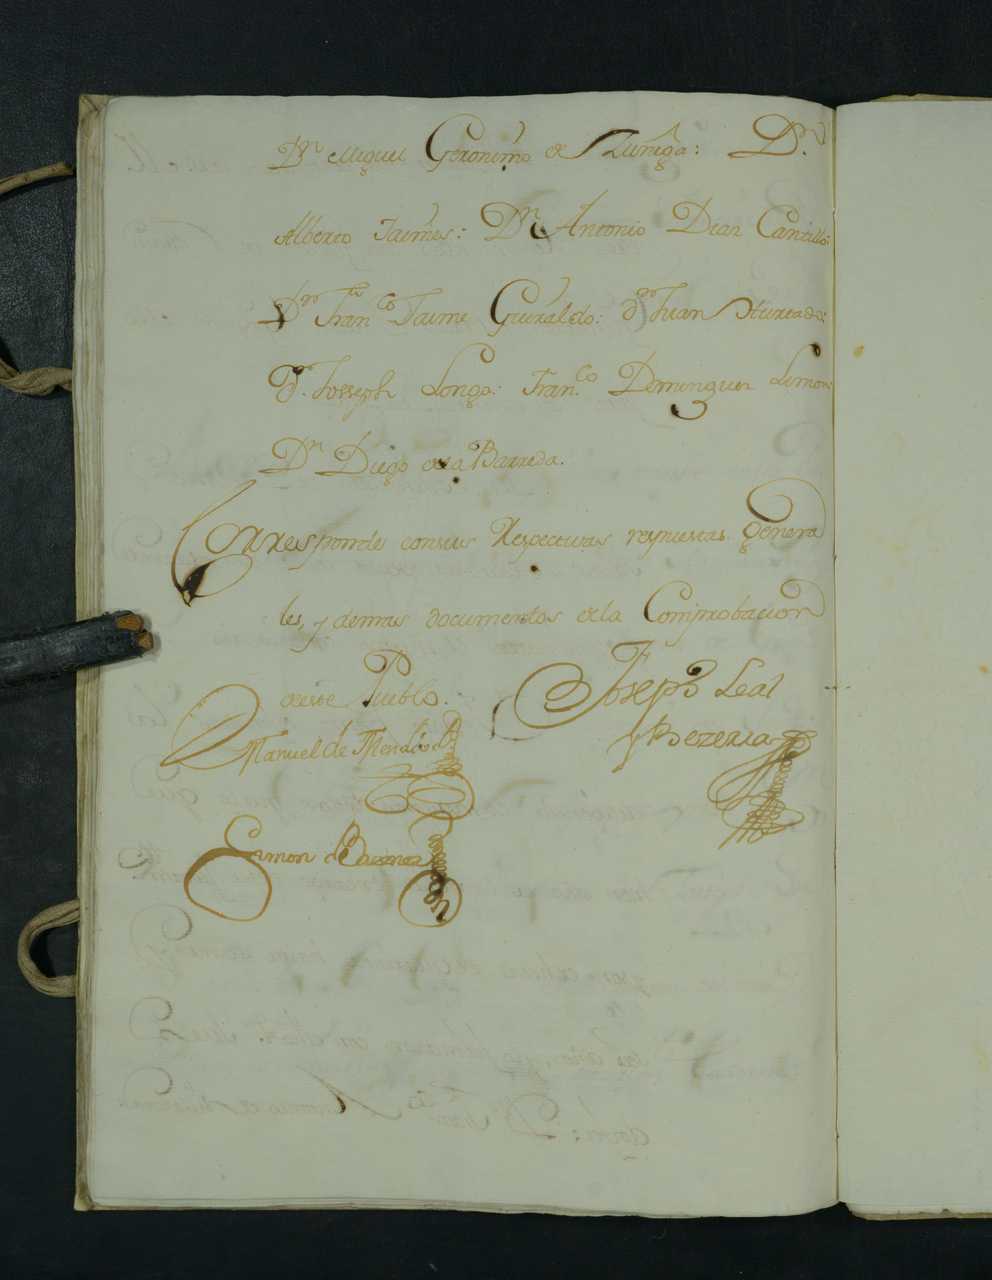 Dn Miguel Geronimo de Zuniga: Dn
Alberto Jaimes: Dn Antonio Diaz Cantillo:
Dn Franco Jaime Guiraldo: dn Juan Hurtado:
Dn Josseph Longo: Franco Dominguez Limon:
Dn Diego de la Barreda.
Corresponde consus Respectivas respuestas genera
les, y demas documentos dela Comprobacion
deeste Pueblo.
Joseph Leal
Bezerra
Manuel de
Simon de